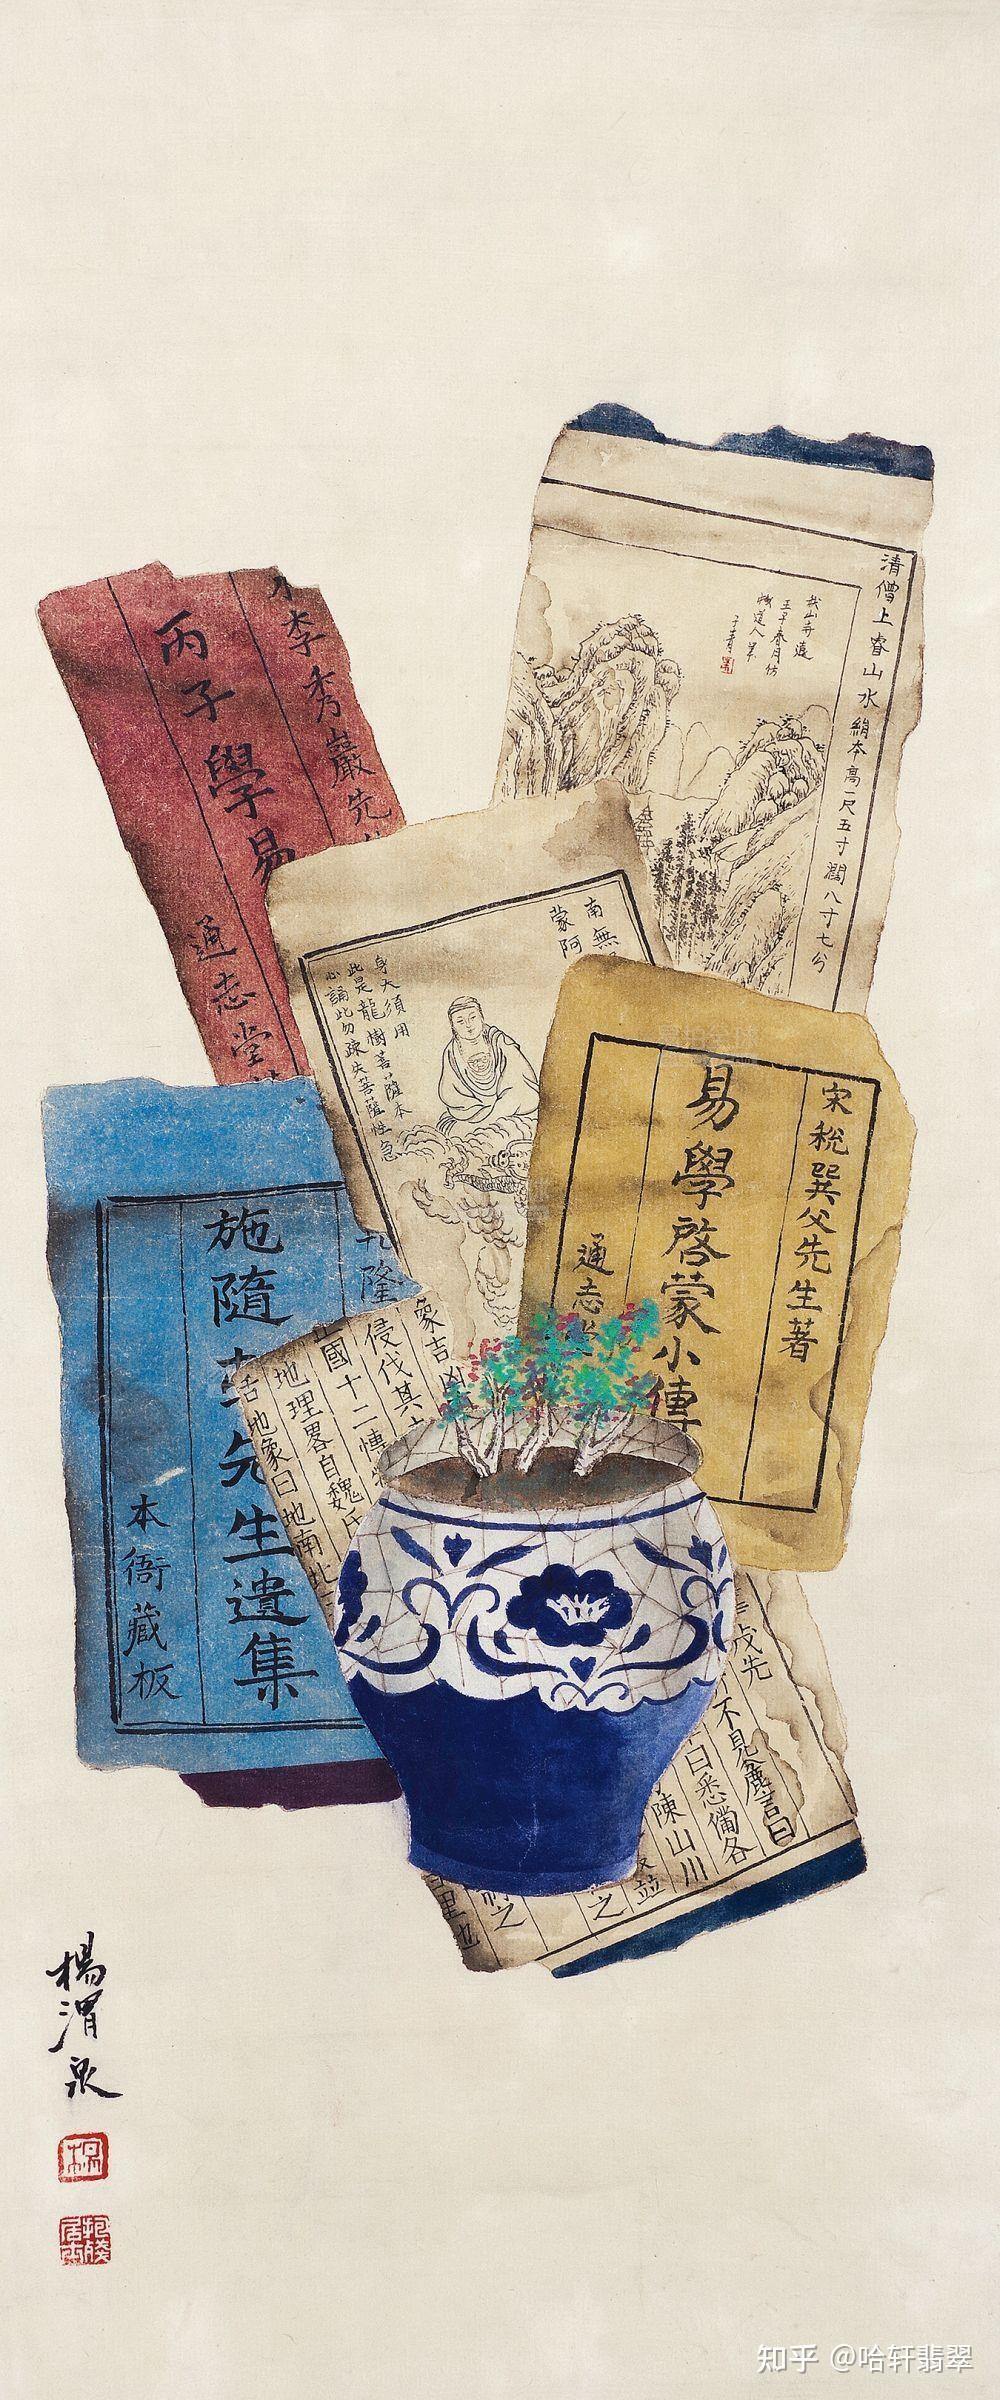 清僧上睿山水
絹本高一尺五寸濶八寸七分
李秀巖先
丙子學易
通志堂
南無
蒙阿
身大須用
此是龍樹菩薩本
心誦此勿疎失菩薩性急
宋稅巽父先生著
易學啓蒙小傳
通志堂
施隨
先生遺集
本衙藏板
象吉凶
侵伐其
國十二
地理畧自魏氏
地象曰地南北
戍先
不見麤言曰
白悉備各
陳山川
並
之
楊渭泉
知乎 @哈轩翡翠